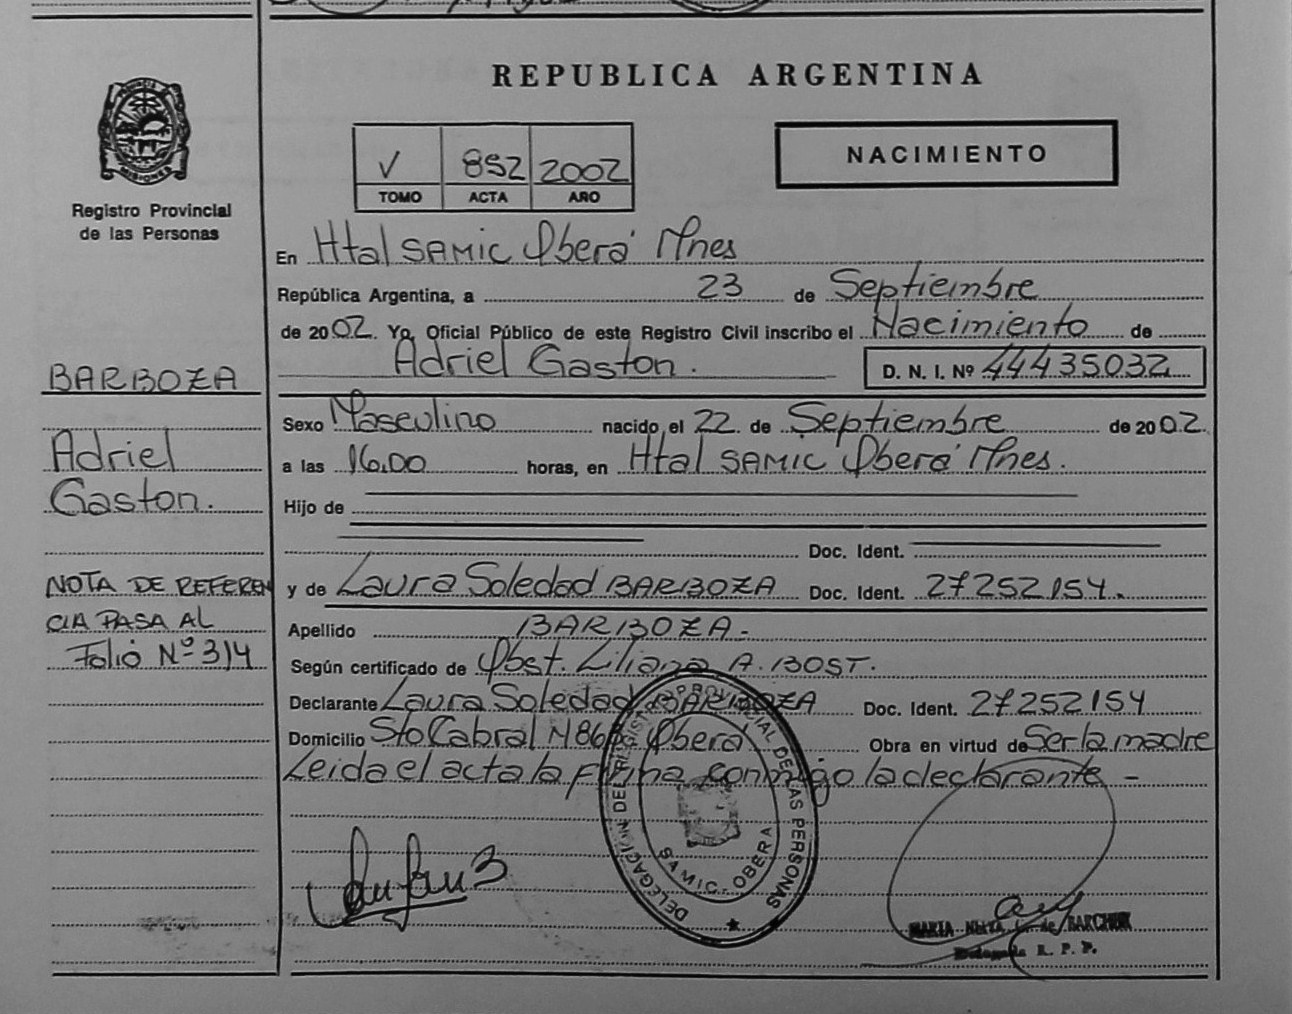 REPUBLICA ARGENTINA
MISIONES
Registro Provincial
de las Personas
V 852 2002
TOMO ACTA AÑO
NACIMIENTO
En Htal SAMIC Oberá Mnes
República Argentina, a 23 de Septiembre
de 2002. Yo, Oficial Público de este Registro Civil inscribo el Nacimiento de
Adriel Gaston. D. N. I. Nº 44435032
BARBOZA
Adriel
Gaston.
NOTA DE REFEREN
CIA PASA AL
Folio Nº 314
Sexo Masculino nacido el 22 de Septiembre de 2002
a las 16,00 horas, en Htal SAMIC Oberá Mnes.
Hijo de
Doc. Ident.
y de Laura Soledad BARBOZA Doc. Ident. 27252154.
Apellido BARBOZA-
Según certificado de Obst. Liliana A. BOST.
Declarante Laura Soledad BARBOZA Doc. Ident. 27252154
Domicilio Sto Cabral N 868 Oberá Obra en virtud de Ser la madre
Leida el acta la firma conmigo la declarante -
DELEGACION DEL REGISTRO PROVINCIAL DE LAS PERSONAS
SAMIC. OBERA
MARIA de BARCHUK
Delegada R. P. P.